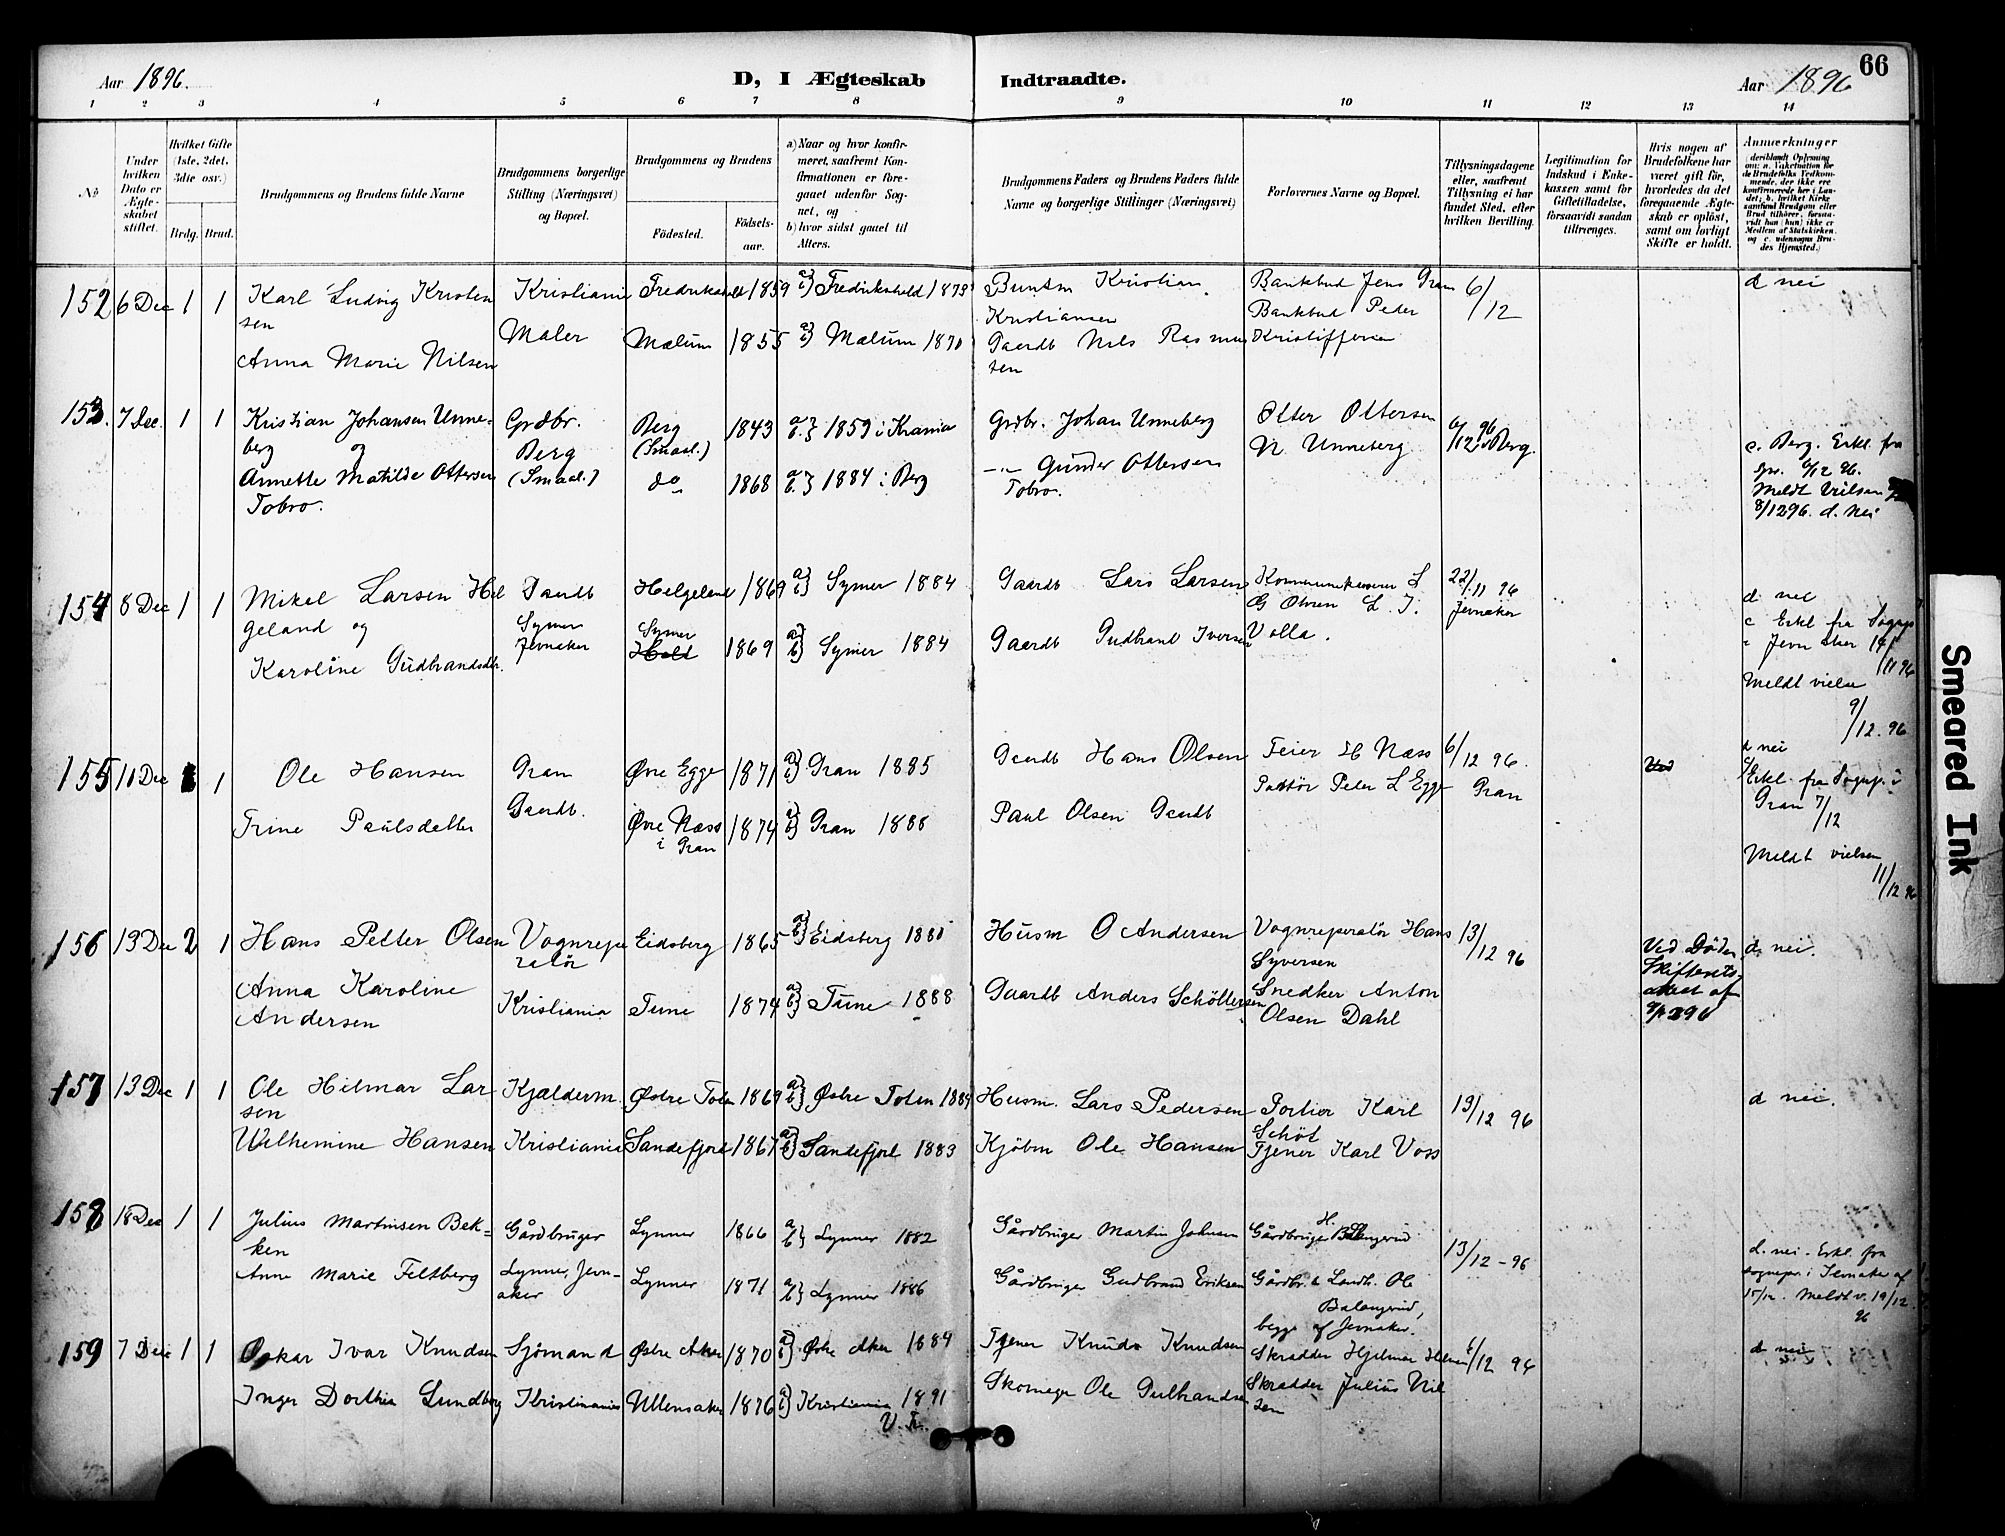 Aar 1896.
D, I Ægteskab Indtraadte.
Aar 1896
66
1 2 3 4 5 6 7 8 9 10 11 12 13 14
No
Under hvilken Dato er Ægteskabet stiftet.
Hvilket Gifte (1ste, 2det, 3die osv.)
Brdg. Brud.
Brudgommens og Brudens fulde Navne
Brudgommens borgerlige Stilling (Næringsvei) og Bopæl.
Brudgommens og Brudens
Födested.
Födselsaar.
a) Naar og hvor konfirmeret, saafremt Konfirmationen er foregaaet udenfor Sognet, og
b) hvor sidst gaaet til Alters.
Brudgommens Faders og Brudens Faders fulde Navne og borgerlige Stillinger (Næringsvei)
Forlovernes Navne og Bopæl.
Tillysningsdagene eller, saafremt Tillysning ei har fundet Sted, efter hvilken Bevilling.
Legitimation for Indskud i Enkekassen samt for Giftetilladelse, forsaavidt saadan tiltrænges.
Hvis nogen af Brudefolkene har været gift för, hvorledes da det foregaaende Ægteskab er oplöst, samt om lovligt Skifte er holdt.
Anmærkninger
(deriblandt Oplysning om: a. Vakcination for de Brudefolks Vedkommende, der ikke ere konfirmerede her i Landet; b. hvilket Kirkesamfund Brudgom eller Brud tilhörer, forsaavidt han (hun) ikke er Medlem af Statskirken, og c. udensogns Brudes Hjemsted.)
152 6 Dec 1 1 Karl Ludvig Kristensen
Kristiania Maler
Fredrikshald 1859 a) b) Fredrikshald 1873
Kristian Kristiansen
Bankbud Jens Gram
Bankbud Peder Kristiffersen
6/12
d nei
Anna Marie Nilsen
Mælum 1855 a) b) Mælum 1870
Gaardb Nils Rasmussen
153. 7 Dec. 1 1 Kristian Johansen Unneberg og
Grdbr. Berg (Smaal.)
Berg (Smaal.) 1843 a. b. } 1859 i Krania
Grdbr. Johan Unneberg
Otter Ottersen
N Unneberg
6/12 96 i Berg.
c. Berg. Erkl. fra
Spr. 6/12 96.
Meldt Vielsen
8/12 96. d. nei
Annette Matilde Ottersen Tobro.
do 1868 a. b. } 1884 i Berg
-"- Gunder Ottersen Tobro.
154 8 Dec 1 1 Mikal Larsen Helgeland og
Gaardb Lymer Jevnaker
Helgeland 1869 a) b) Lymer 1884
Gaardb Lars Larsen
Kommunekasserer L
G Olsen L. I. Volla.
22/11 96 Jevnaker
d nei
c Erkl fra Sognp
i Jevnaker 14/11 96
Meldt vielse
9/12. 96
Karoline Gudbrandsdtr.
Lymer Hold 1869 a) b) Lymer 1884
Gaardb Gudbrand Iversen
155 11 Dec 1 1 Ole Hansen
Gran Gaardb.
Øvre Egge 1871 a) b) Gran 1885
Gaardb Hans Olsen
Feier H Næss
Peder L Egge
6/12 96. Gran
Ved
d nei
Erkl. fra Sognp. i
Gran 7/12
Meldt vielsen
11/12 96
Trine Paulsdatter
Øvre Næss i Gran 1874 a) b) Gran 1888
Paul Olsen Gaardb
156 13 Dec 2 1 Hans Petter Olsen
Vognreparatör
Eidsberg 1865 a) b) Eidsberg 1880
Husm O Andersen
Vognreparatör Hans Syversen
13/12 96
Ved Döden
Skifterets-
attest af
d. nei.
Anna Karoline Andersen
Kristiania
Tune 1874 a) b) Tune 1888
Gaardb Anders Schöttersen
Snedker Anton Olsen Dahl
157 13 Dec 1 1 Ole Hilmar Larsen
Kjælderm.
Østre Toten 1869 a) b) Østre Toten 1884
Husm. Lars Pedersen
Portier Karl Schöt
13/12 96
d nei.
Wilhemine Hansen
Kristiania
Sandefjord 1867 a) b) Sandefjord 1883
Kjöbm Ole Hansen
Tjener Karl Voss
158 18 Dec 1 1 Julius Martinsen Bekken
Gårdbruger
Lynner 1866 a/b } Lynner 1882
Gårdbruger Martin Johnsen
Gårdbruger H.
13/12 - 96
d. nei - Erkl. fra
sognepr. i Jevnaker af
15/12. Meldt v. 19/12.
96
Anne Marie Feltberg
Lynner, Jevnaker
Lynner 1871 a/b } Lynner 1886
Gårdbruger Gudbrand Eriksen
Gårdbr. & Landh. Ole
Balangrud,
begge af Jevnaker.
159 7 Dec 1 1 Oskar Ivar Knudsen
Sjömand
Østre Aker 1870 a) b) Østre Aker 1884
Tjener Knudo Knudsen
Skrædder Hjelmar
6/12 96
d. nei
Inger Dorthea Lundberg
Kristiania
Ullensaker 1876 a) b) Kristiania 1891
Skomager Ole Gulbrandsen
Skrædder Julius Nilsen
Smeared Ink